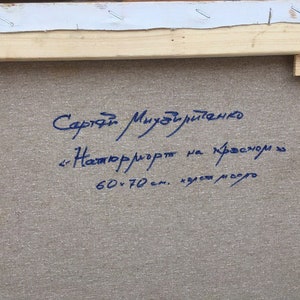 Сергей Михайличенко
«Натюрморт на красном»
60×70 см. холст масло